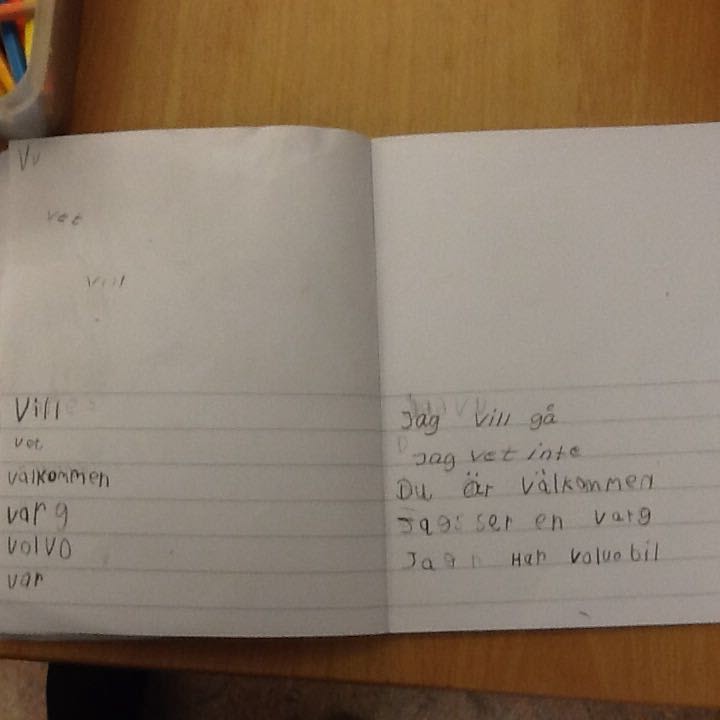 Vv
vet
vill
Vill
vet
välkommen
varg
volvo
var
Jag vill gå
Jag vet inte
Du är välkommen
Jag ser en varg
Jag Har volvobil